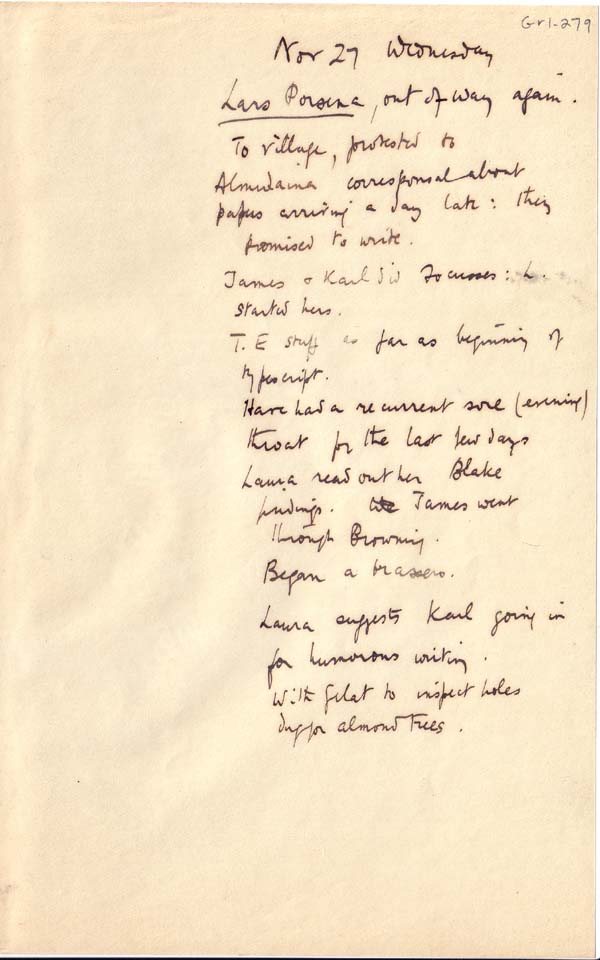 Gr1-279
Nov 27 Wednesday
Lars Porsena, out of way again.
To village, protested to
Almudaina corresponsal about
papers arriving a day late: they
promised to write.
James & Karl did Focusses: L.
started hers.
T.E stuff as far as beginning of
typescript.
Have had a recurrent sore (evening)
throat for the last few days
Laura read out her Blake
findings. James went
through Browning.
Began a brasero.
Laura suggests Karl going in
for humorous writing.
With Gelat to inspect holes
dug for almond trees.